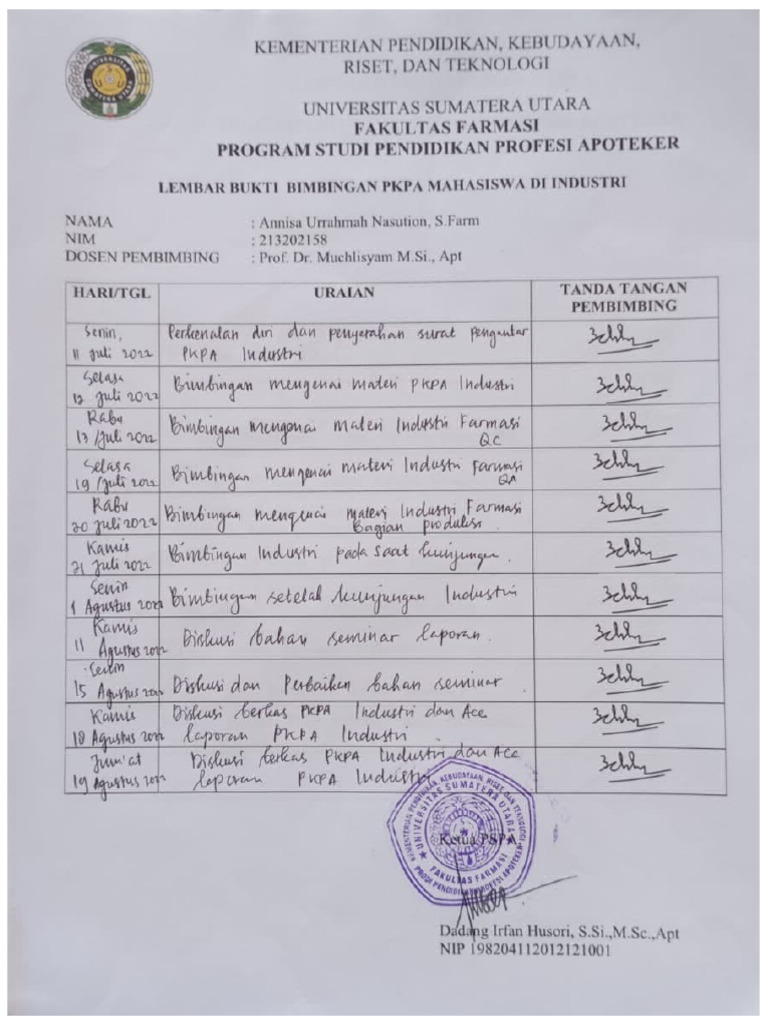 KEMENTERIAN PENDIDIKAN, KEBUDAYAAN,
RISET, DAN TEKNOLOGI
UNIVERSITAS SUMATERA UTARA
FAKULTAS FARMASI
PROGRAM STUDI PENDIDIKAN PROFESI APOTEKER
LEMBAR BUKTI BIMBINGAN PKPA MAHASISWA DI INDUSTRI
NAMA : Annisa Urrahmah Nasution, S.Farm
NIM : 213202158
DOSEN PEMBIMBING : Prof. Dr. Muchlisyam M.Si., Apt
HARI/TGL URAIAN TANDA TANGAN
PEMBIMBING
Senin, Perkenalan diri dan penyerahan surat pengantar
11 Juli 2022 PKPA Industri
Selasa Bimbingan mengenai materi PKPA Industri
12 Juli 2022
Rabu Bimbingan mengenai materi Industri Farmasi
13 /Juli 2022 QC
Selasa Bimbingan mengenai materi Industri Farmasi
19 /Juli 2022 QA
Rabu Bimbingan mengenai materi Industri Farmasi
20 Juli 2022 Bagian produksi
Kamis Bimbingan Industri pada saat kunjungan.
21 Juli 2022
Senin Bimbingan setelah kunjungan Industri
1 Agustus 2022
Kamis Diskusi bahan seminar laporan.
11 Agustus 2022
Senin Diskusi dan Perbaikan bahan seminar
15 Agustus 2022
Kamis Diskusi berkas PKPA Industri dan Acc
18 Agustus 2022 laporan PKPA Industri.
Jum'at Diskusi berkas PKPA Industri dan Acc
19 Agustus 2022 laporan PKPA Industri
KEMENTERIAN PENDIDIKAN, KEBUDAYAAN, RISET, DAN TEKNOLOGI
UNIVERSITAS SUMATERA UTARA
Ketua PSPA
FAKULTAS FARMASI
Dadang Irfan Husori, S.Si.,M.Sc.,Apt
NIP 198204112012121001